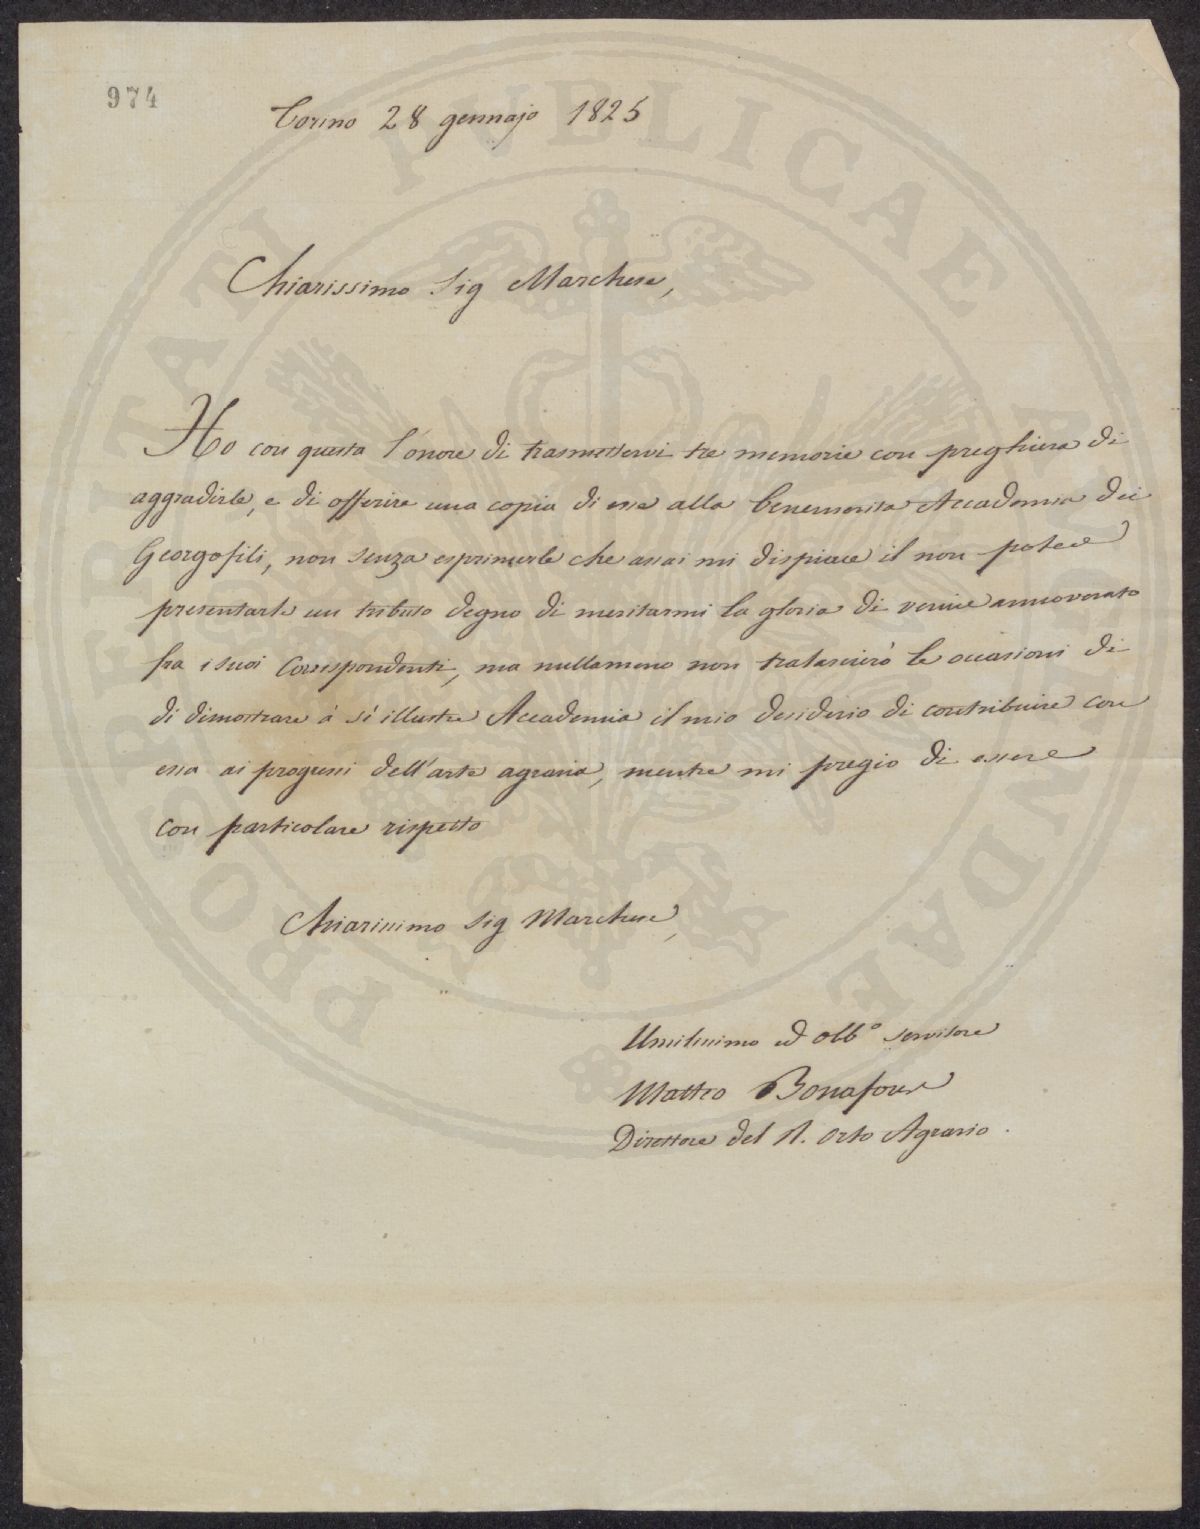 974
Torino 28 gennajo 1825
Chiarissimo Sig Marchese,
Ho con questa l'onore di trasmettervi tre memorie con preghiera di
aggradirle, e di offerire una copia di esse alla benemerita Accademia dei
Georgofili, non senza esprimerle che assai mi dispiace il non potere
presentarle un tributo degno di meritarmi la gloria di venire annoverato
fra i suoi Corrispondenti, ma nullameno non tralascierò le occasioni di
di dimostrare à sì illustre Accademia il mio desiderio di contribuire con
essa ai progressi dell'arte agraria, mentre mi pregio di essere
con particolare rispetto
Chiarissimo Sig Marchese,
Umilissimo ed obb.º servitore
Matteo Bonafous
Direttore del R. Orto Agrario.
PROSPERITATI PVBLICAE AVGENDAE